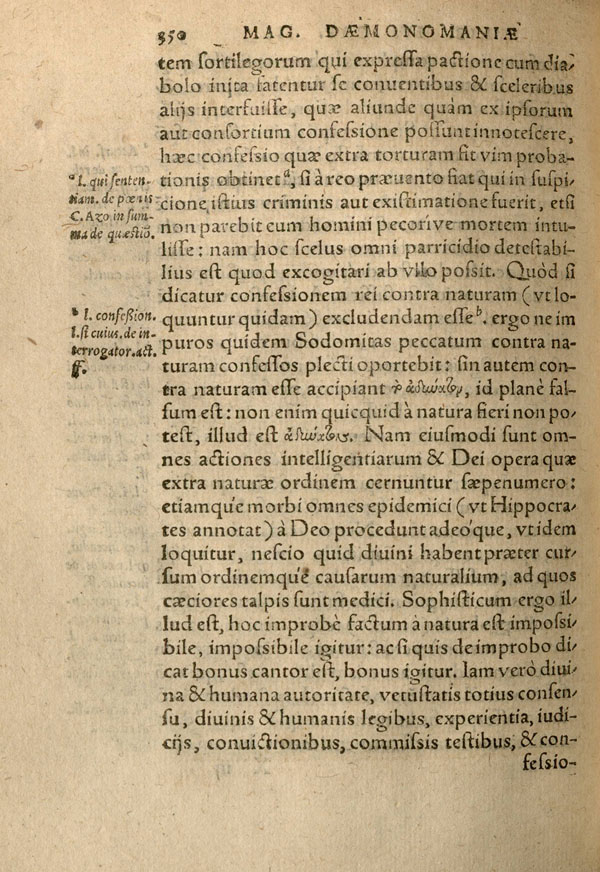 350 MAG. DÆMONOMANIÆ
tem sortilegorum qui expressa pactione cum dia-
bolo inita fatentur se conuentibus & sceleribus
alijs interfuisse, quæ aliunde quàm ex ipsorum
aut consortium confessione possunt innotescere,
hæc confessio quæ extra torturam fit vim proba-
tionis obtinet a, si à reo præuento fiat qui in suspi-
cione istius criminis aut existimatione fuerit, etsi
non parebit eum homini pecorive mortem intu-
lisse: nam hoc scelus omni parricidio detestabi-
lius est quod excogitari ab vllo possit. Quòd si
dicatur confessionem rei contra naturam (vt lo-
quuntur quidam) excludendam esse b. ergo ne im
puros quidem Sodomitas peccatum contra na-
turam confessos plecti oportebit: sin autem con-
tra naturam esse accipiant , id planè fal-
sum est: non enim quicquid à natura fieri non po-
test, illud est . Nam eiusmodi sunt om-
nes actiones intelligentiarum & Dei opera quæ
extra naturæ ordinem cernuntur sæpenumero:
etiamque morbi omnes epidemici (vt Hippocra-
tes annotat) à Deo procedunt adeóque, vt idem
loquitur, nescio quid diuini habent præter cur-
sum ordinemqué causarum naturalium, ad quos
cæciores talpis sunt medici. Sophisticum ergo il-
lud est, hoc improbè factum à natura est impossi-
bile, impossibile igitur: ac si quis de improbo di-
cat bonus cantor est, bonus igitur. Iam verò diui-
na & humana autoritate, vetustatis totius consen-
su, diuinis & humanis legibus, experientia, iudi-
cijs, conuictionibus, commissis testibus, & con-
fessio-
a l. qui senten-
tiam. de pœnis
C. Azo in sum-
ma de quæstio.
b l. confession.
l. si cuius. de in-
terrogator. act.
ff.